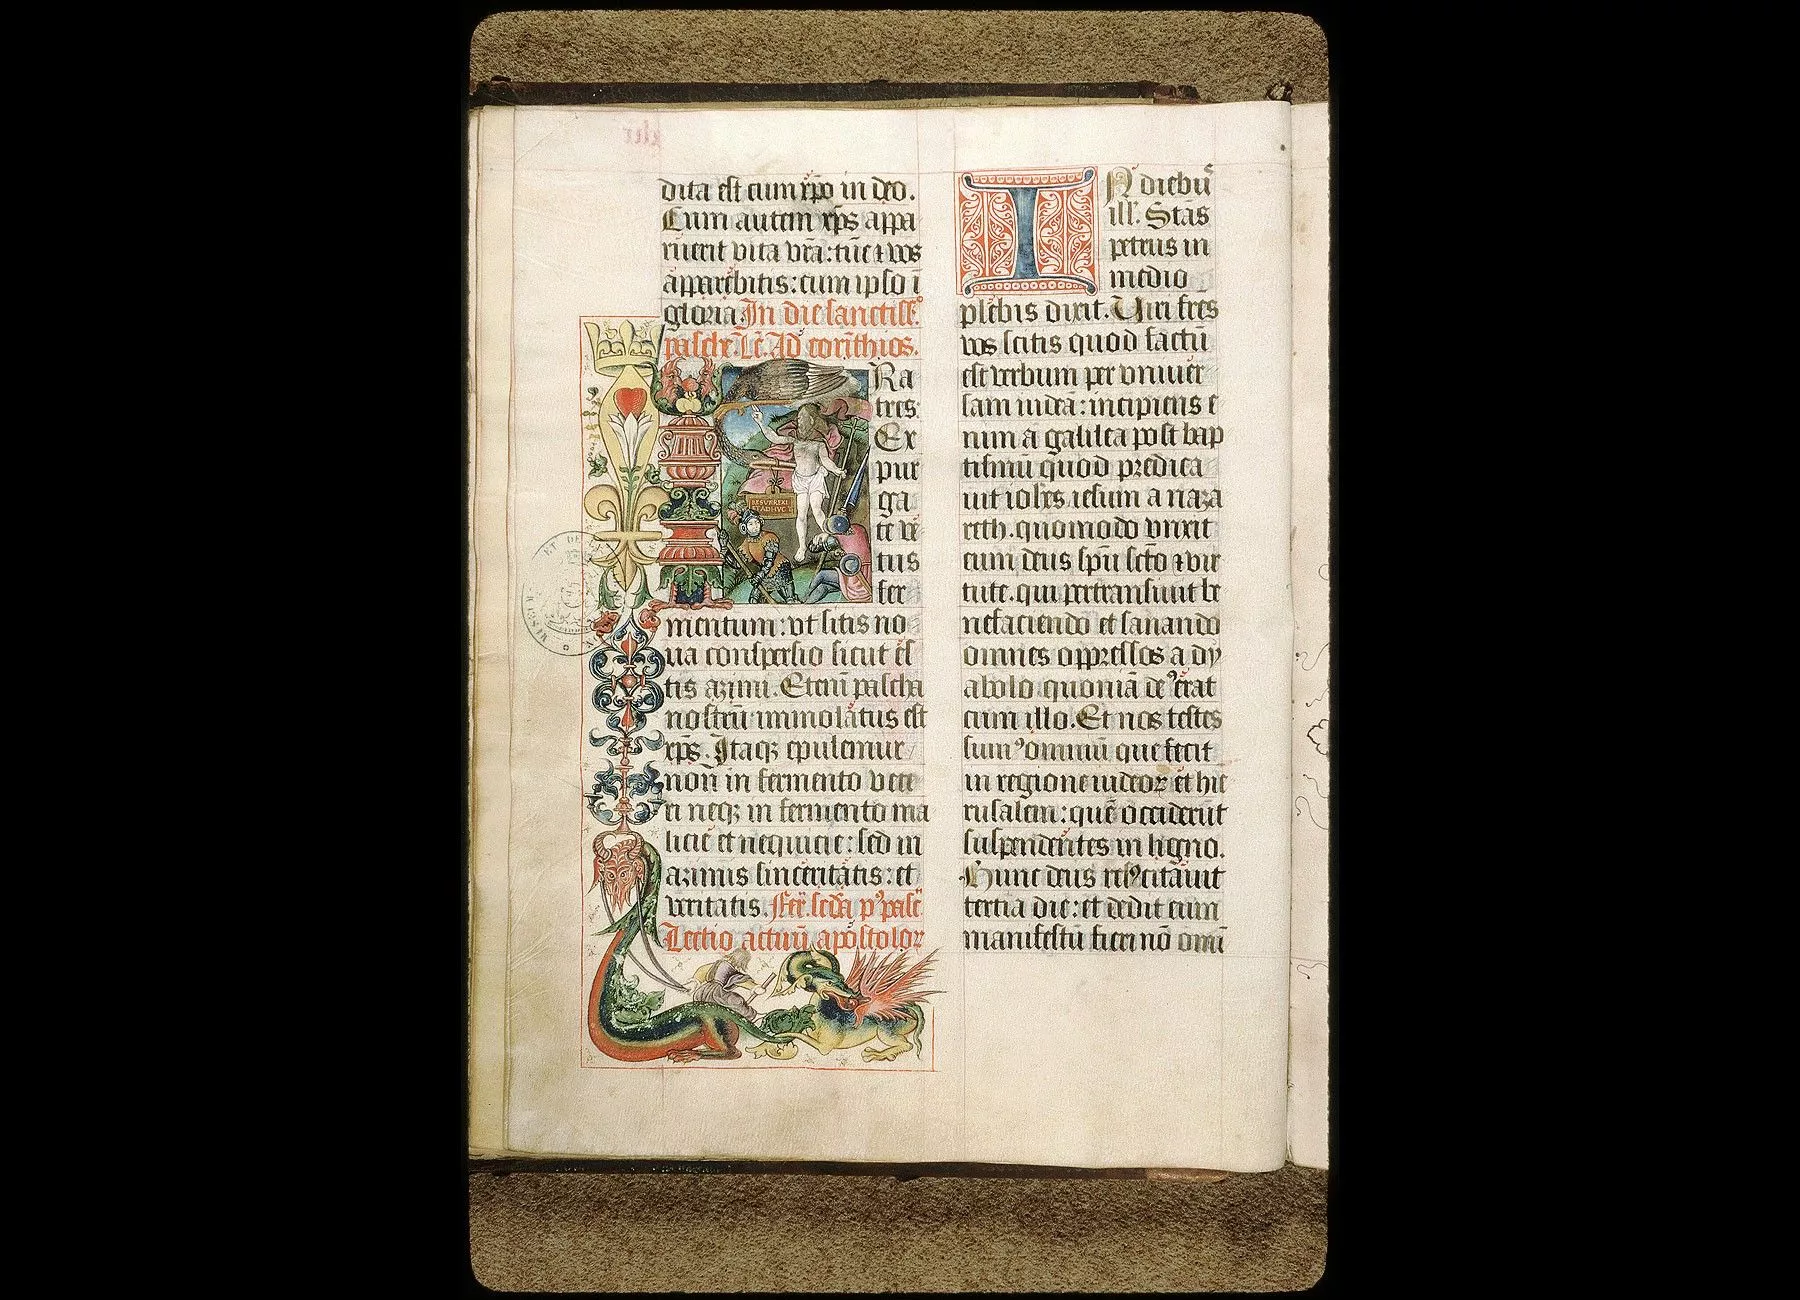 dita est cum xp̄o in deo.
Cum autem xp̄s appa
ruerit vita vr̄a: tūc ⁊ vos
apparebitis: cum ipso ī
gloria. In die sanctiss̄.
pasche. Lc̄. Ad corīthios.
Ra
tres:
Ex
pur
ga
te ve
tus
fer
mentum: vt sitis no
ua conspersio sicut es
tis azimi. Etenī pascha
nostrū immolatus est
xp̄s. Itaqꝫ epulemur
non in fermento vete
ri neqꝫ in fermento ma
licie et nequicie: sed in
azimis sinceritatis: et
veritatis. Fer̄. scd̄a pꝰ pasc̄
Lectio actuū apostoloꝝ
RESURREXI
ET ADHUC T
IN diebꝰ
ill'. Stās
petrus in
medio
plebis dixit. Uiri fr̄es
vos scitis quod factū
est verbum per vniuer
sam iudeā: incipiens e
nim a galilea post bap
tismū quod predica
uit ioh̄es iesum a naza
reth. quomodo vnxit
eum deus sp̄u sc̄to ⁊ vir
tute. qui pertransiuit be
nefaciendo et sanando
omnes oppressos a dy
abolo quoniā deꝰ erat
cum illo. Et nos testes
sumꝰ omniū que fecit
in regione iudeoꝝ et hie
rusalem: quē occiderūt
suspendentes in ligno.
Hunc deus resuscitauit
tertia die: et dedit eum
manifestū fieri nō omī